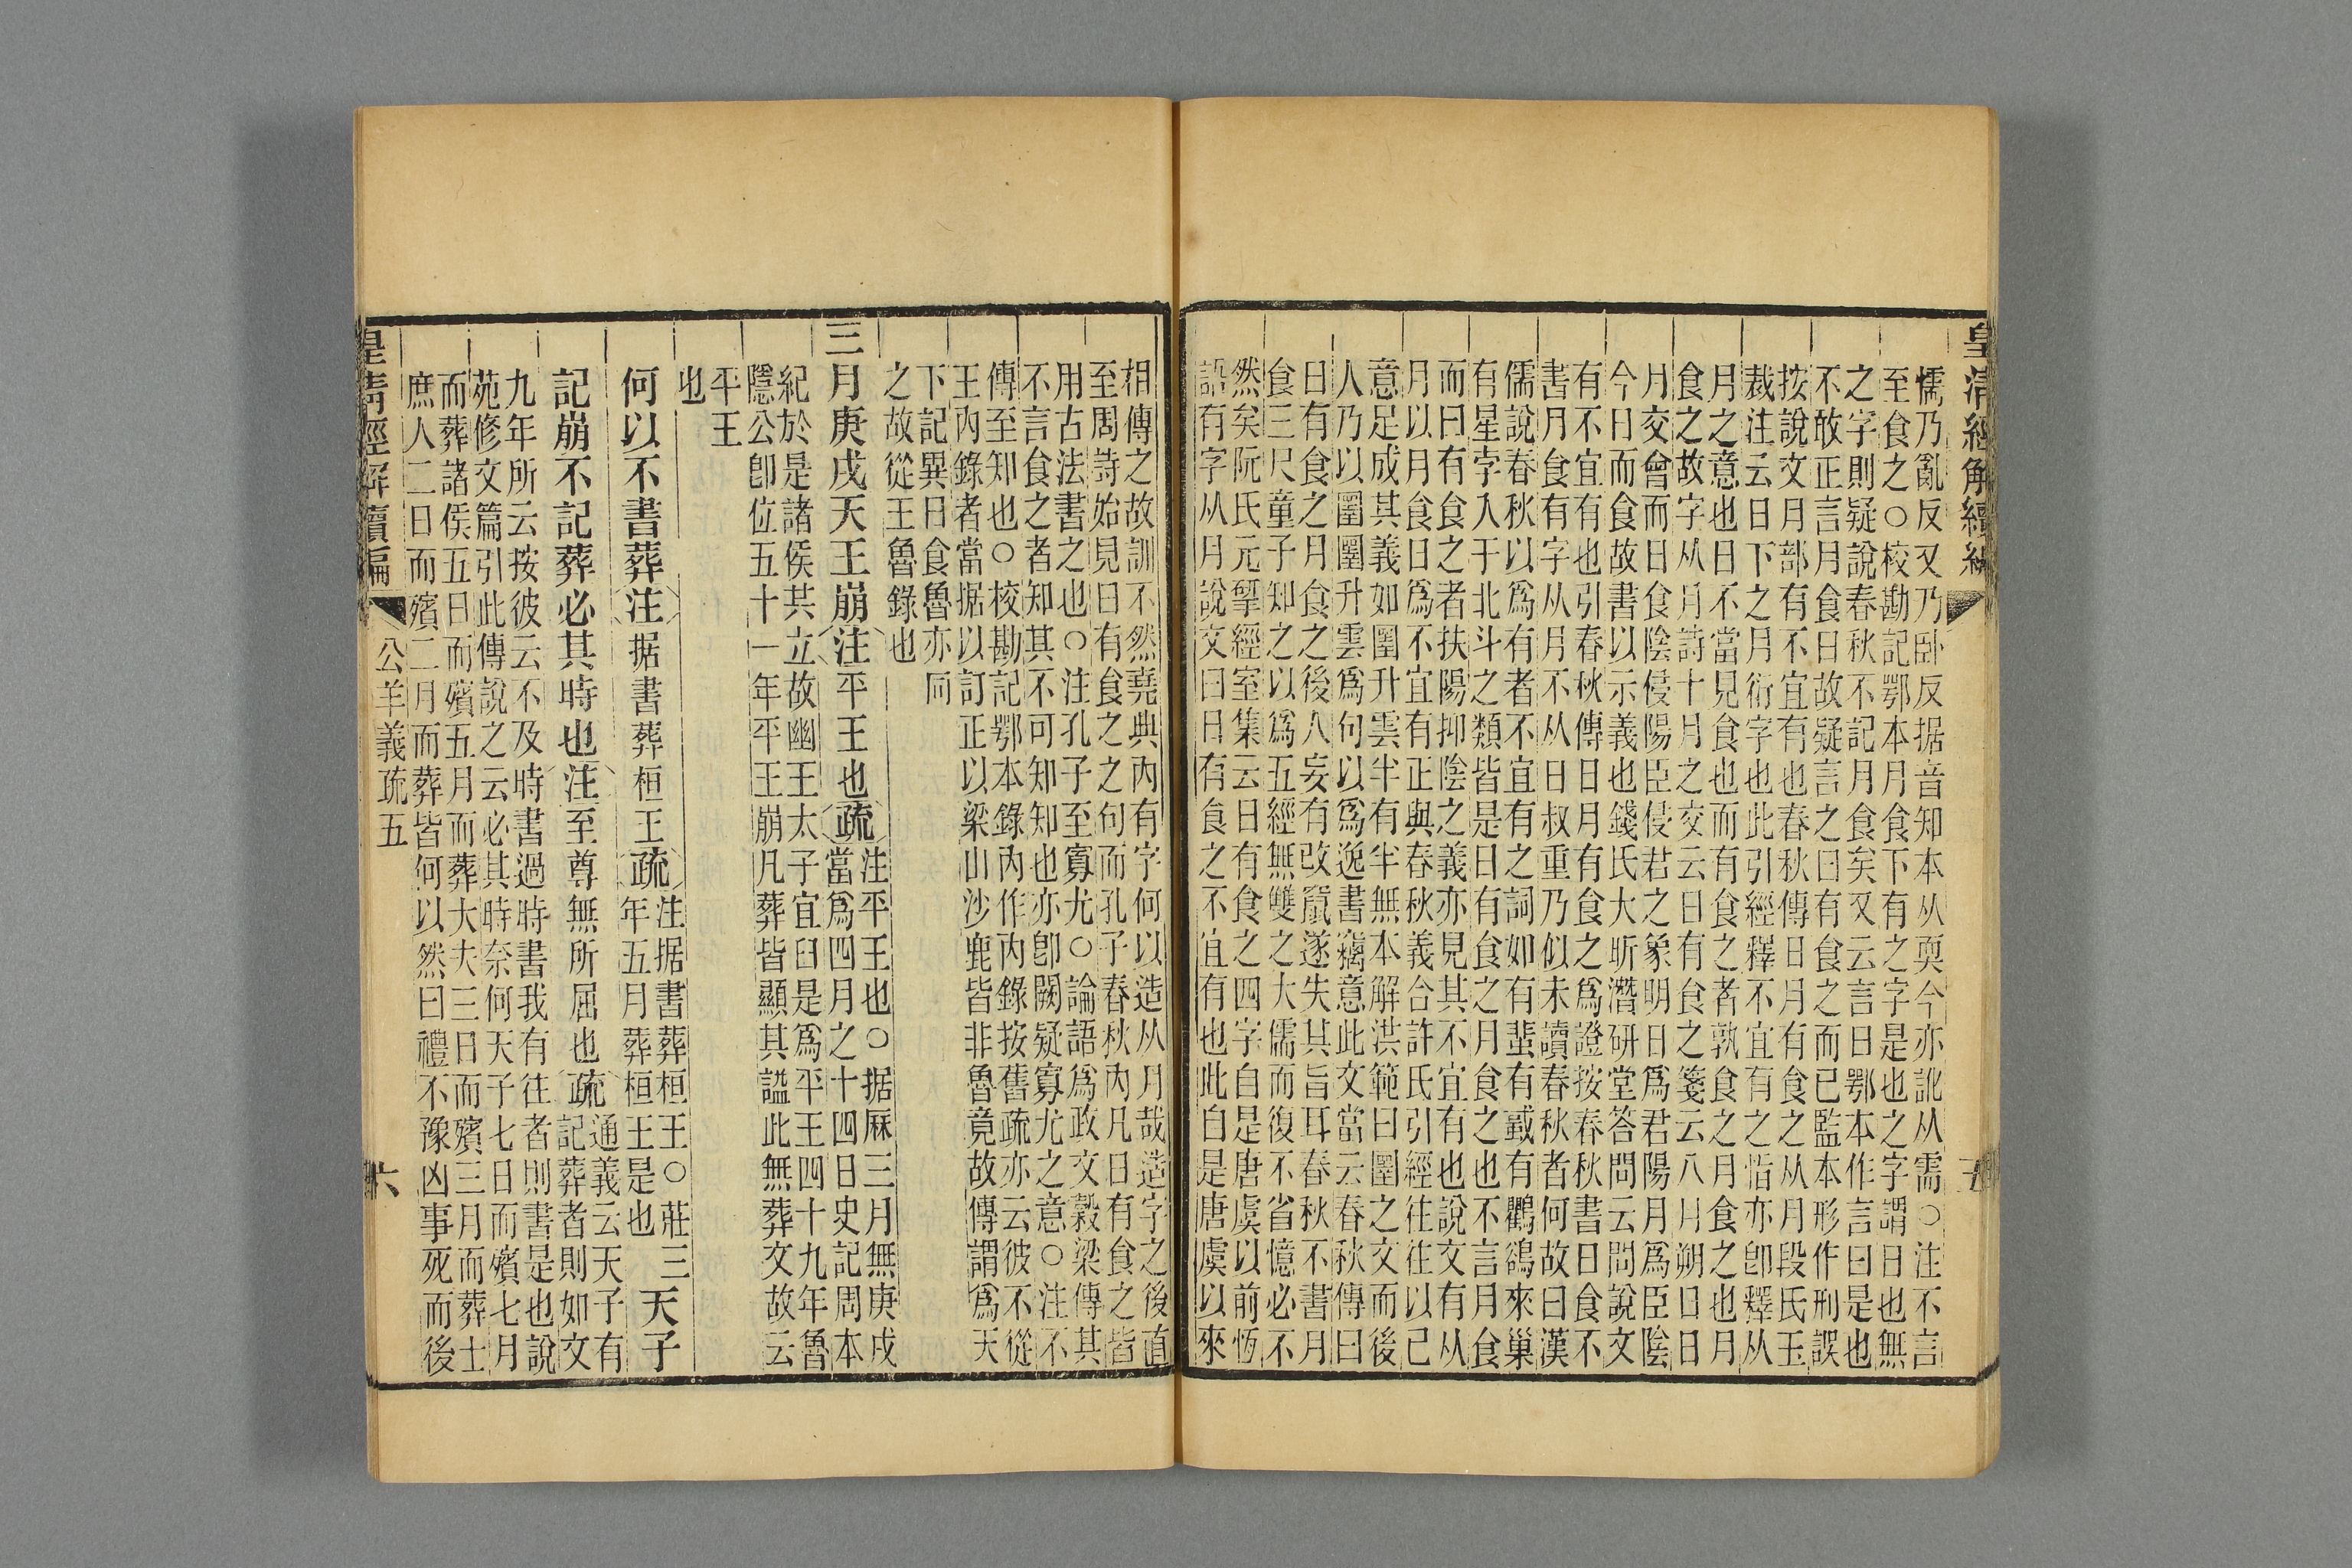 皇清經解續編
懦乃亂反又乃卧反据音知本从耎今亦訛从需○注不言
至食之○校勘記鄂本月食下有之字是也之字謂日也無
之字則疑說春秋不記月食矣又云言日鄂本作言曰是也
不敢正言月食日故疑言之曰有食之而已監本形作刑誤
按說文月部有不宜有也春秋傳日月有食之从月段氏玉
裁注云日下之月衍字也此引經釋不宜有之恉亦卽釋从
月之意也日不當見食也而有食之者孰食之月食之也月
食之故字从月詩十月之交云日有食之箋云八月朔日日
月交會而日食陰侵陽臣侵君之象明日爲君陽月爲臣陰
今日而食故書以示義也錢氏大昕潛研堂答問云問說文
有不宜有也引春秋傳日月有食之爲證按春秋書日食不
書月食有字从月不从日叔重乃似未讀春秋者何故曰漢
儒說春秋以爲有者不宜有之詞如有蜚有蜮有鸜鵒來巢
有星孛入于北斗之類皆是日有食之月食之也不言月食
而曰有食之者扶陽抑陰之義亦見其不宜有也說文有从
月以月食日爲不宜有正與春秋義合許氏引經往往以己
意足成其義如圛升雲半有半無本解洪範曰圛之文而後
人乃以圛圛升雲爲句以爲逸書竊意此文當云春秋傳曰
日有食之月食之後八妄有改竄遂失其旨耳春秋不書月
食三尺童子知之以爲五經無雙之大儒而復不省憶必不
然矣阮氏元揅經室集云日有食之四字自是唐虞以前恆
語有字从月說文曰日有食之不宜有也此自是唐虞以來
五
相傳之故訓不然堯典內有字何以造从月哉造字之後直
至周詩始見曰有食之之句而孔子春秋內凡日有食之皆
用古法書之也○注孔子至寡尤○論語爲政文榖梁傳其
不言食之者知其不可知知也亦卽闕疑寡尤之意○注不
傳至知也○校勘記鄂本錄內作內錄按舊疏亦云彼不從
王內錄者當据以訂正以梁山沙鹿皆非魯竟故傳謂爲天
下記異日食魯亦同
之故從王魯錄也
三月庚戌天王崩注平王也疏注平王也○据厤三月無庚戌
當爲四月之十四日史記周本
紀於是諸侯共立故幽王太子宜臼是爲平王四十九年魯
隱公卽位五十一年平王崩凡葬皆顯其謚此無葬文故云
平王
也
何以不書葬注据書葬桓王疏注据書葬桓王○莊三
年五月葬桓王是也天子
記崩不記葬必其時也注至尊無所屈也疏通義云天子有
記葬者則如文
九年所云按彼云不及時書過時書我有往者則書是也說
苑修文篇引此傳說之云必其時奈何天子七日而殯七月
而葬諸侯五日而殯五月而葬大夫三日而殯三月而葬士
庶人二日而殯二月而葬皆何以然曰禮不豫凶事死而後
皇清經解續編
公羊義疏五
六